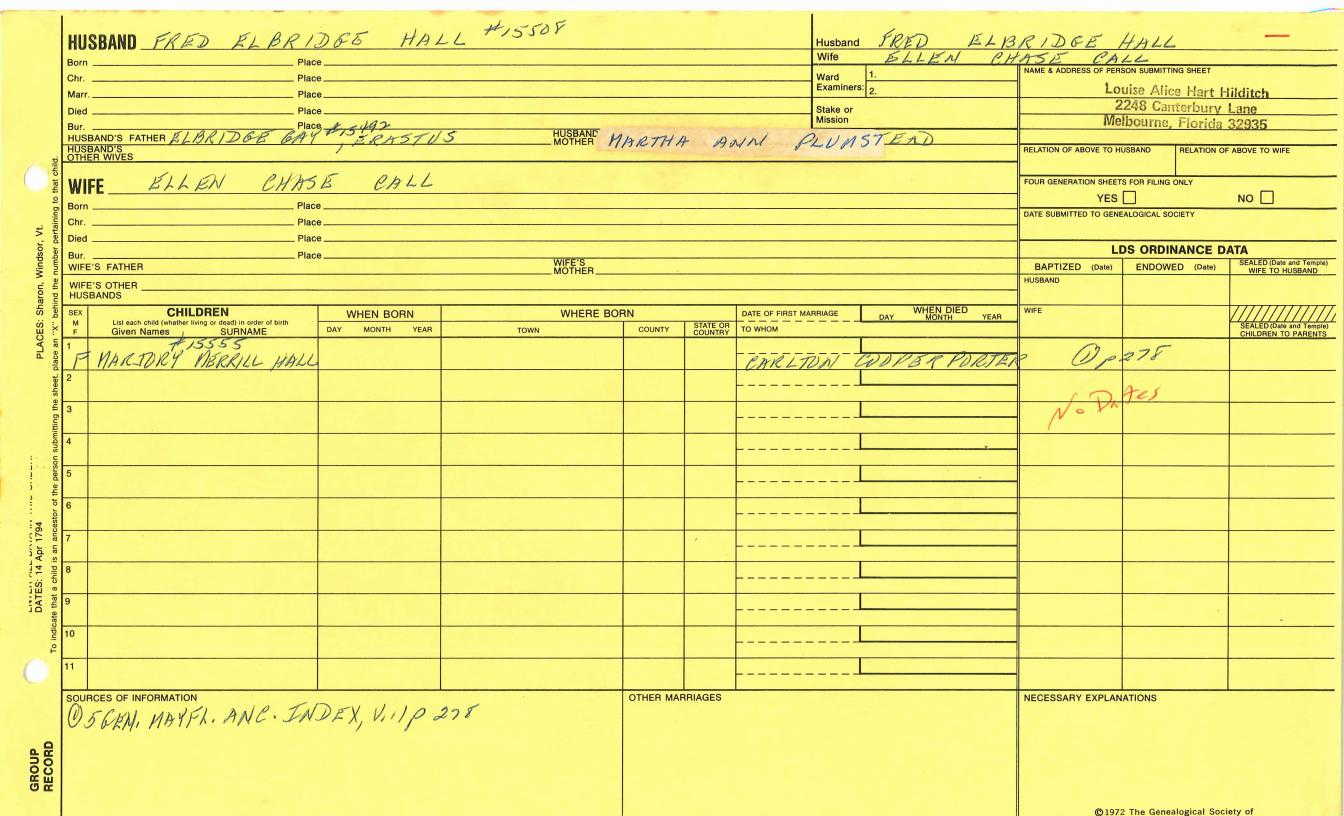 HUSBAND FRED ELBRIDGE HALL #15508
Born Place
Chr. Place
Marr. Place
Died Place
Bur. Place
HUSBAND'S FATHER ELBRIDGE GAY #15492, ERASTUS HUSBAND MOTHER MARTHA ANN PLUMSTEAD
HUSBAND'S OTHER WIVES
Husband FRED ELBRIDGE HALL
Wife ELLEN CHASE CALL
Ward Examiners: 1.
2.
Stake or Mission
NAME & ADDRESS OF PERSON SUBMITTING SHEET
Louise Alice Hart Hilditch
2248 Canterbury Lane
Melbourne, Florida 32935
RELATION OF ABOVE TO HUSBAND RELATION OF ABOVE TO WIFE
FOUR GENERATION SHEETS FOR FILING ONLY
YES NO
DATE SUBMITTED TO GENEALOGICAL SOCIETY
WIFE ELLEN CHASE CALL
Born Place
Chr. Place
Died Place
Bur. Place
WIFE'S FATHER WIFE'S MOTHER
WIFE'S OTHER HUSBANDS
LDS ORDINANCE DATA
BAPTIZED (Date) ENDOWED (Date) SEALED (Date and Temple) WIFE TO HUSBAND
HUSBAND
WIFE
SEALED (Date and Temple) CHILDREN TO PARENTS
SEX M F CHILDREN WHEN BORN WHERE BORN DATE OF FIRST MARRIAGE WHEN DIED
List each child (whether living or dead) in order of birth
Given Names SURNAME DAY MONTH YEAR TOWN COUNTY STATE OR COUNTRY TO WHOM DAY MONTH YEAR
1 #15555
F MARJORY MERRILL HALL CARLTON COOPER PORTER ① p 278
2
No Dates
3
4
5
6
7
8
9
10
11
SOURCES OF INFORMATION OTHER MARRIAGES NECESSARY EXPLANATIONS
① 5 GEN. MAYFL. ANC. INDEX, V.1, p 278
©1972 The Genealogical Society of
PLACES: Sharon, Windsor, Vt.
DATES: 14 Apr 1794
To indicate that a child is an ancestor of the person submitting the sheet, place an "X" behind the number pertaining to that child.
GROUP RECORD